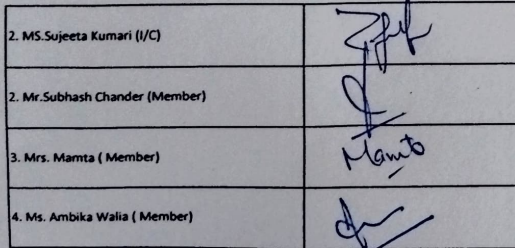 2. MS.Sujeeta Kumari (I/C)
2. Mr.Subhash Chander (Member)
3. Mrs. Mamta ( Member)
Mamta
4. Ms. Ambika Walia ( Member)